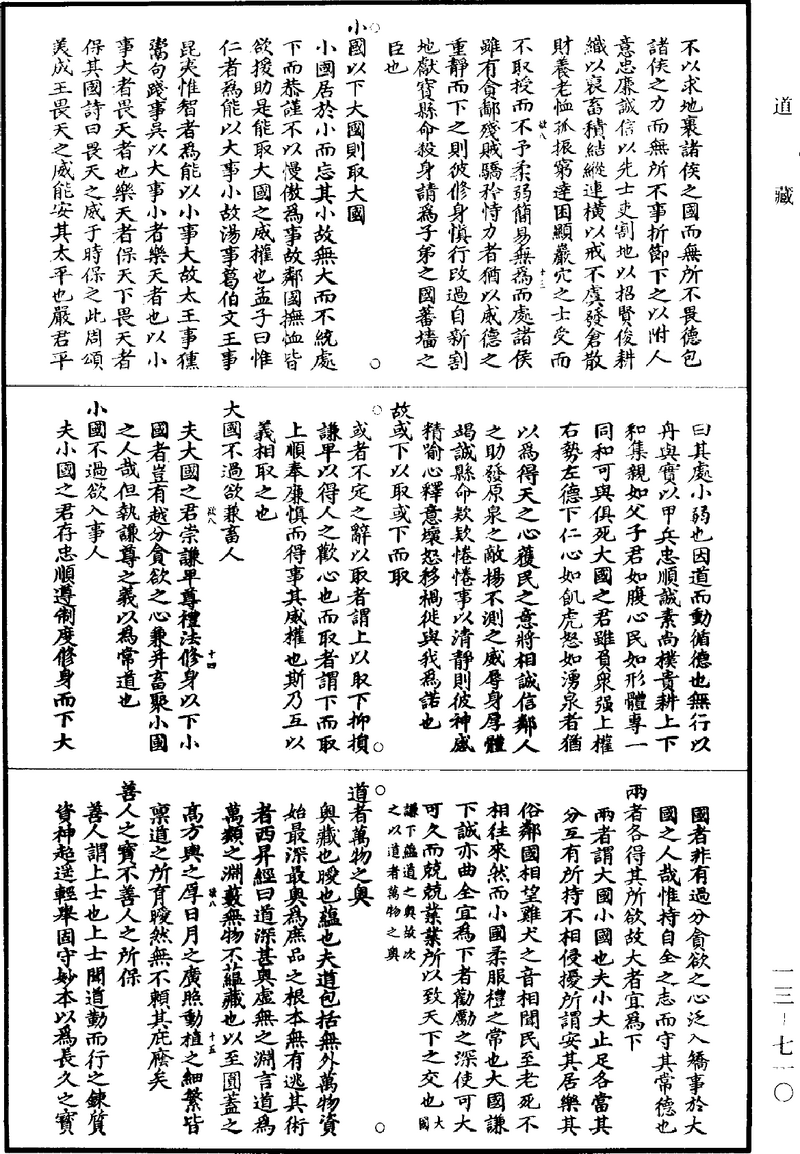 道藏
不以求地裹諸侯之國而無所不畏德包
諸侯之力而無所不事折節下之以附人
意忠廉誠信以先士吏割地以招賢俊耕
織以衰畜積結縱連橫以戒不虞發倉散
財養老恤孤振窮達困顯嚴穴之士受而
不取授而不予柔弱簡易無為而處諸侯
雖有貪鄙殘賊驕矜恃力者猶以威德之
重靜而下之則彼修身慎行改過自新割
地獻寶縣命殺身請為子弟之國蕃墻之
臣也
小國以下大國則取大國
小國居於小而忘其小故無大而不統處
下而恭謹不以慢傲為事故鄰國撫恤皆
欲援助是能取大國之威權也孟子曰惟
仁者為能以大事小故湯事葛伯文王事
昆夷惟智者為能以小事大故太王事獯
鬻句踐事吳以大事小者樂天者也以小
事大者畏天者也樂天者保天下畏天者
保其國詩曰畏天之威于時保之此周頌
美成王畏天之威能安其太平也嚴君平
曰其處小弱也因道而動循德也無行以
舟與實以甲兵忠順誠素尚樸貴耕上下
和集親如父子君如腹心民如形體專一
同和可與俱死大國之君雖負衆强上權
右勢左德下仁心如飢虎怒如湧泉者猶
以為得天之心獲民之意將相誠信鄰人
之助發原泉之敵揚不測之威辱身厚體
竭誠縣命欵欵惓惓事以清靜則彼神感
精喻心釋意壞怨移禍徙與我為諾也
故或下以取或下而取
或者不定之辭以取者謂上以取下抑損
謙卑以得人之歡心也而取者謂下而取
上順奉廉慎而得事其威權也斯乃互以
義相取之也
大國不過欲兼畜人
夫大國之君崇謙卑尊禮法修身以下小
國者豈有越分貪欲之心兼并畜聚小國
之人哉但執謙尊之義以為常道也
小國不過欲入事人
夫小國之君存忠順遵制度修身而下大
國者非有過分貪欲之心泛入矯事於大
國之人哉惟持自全之志而守其常德也
兩者各得其所欲故大者宜為下
兩者謂大國小國也夫小大止足各當其
分互有所持不相侵擾所謂安其居樂其
俗鄰國相望雞犬之音相聞民至老死不
相往來然而小國柔服禮之常也大國謙
下誠亦曲全宜為下者勸勵之深使可大
可久而兢兢業業所以致天下之交也大國
謙下蘊道之奥故次
之以道者萬物之奥
道者萬物之奥
奥藏也曖也蘊也夫道包括無外萬物資
始最深最奥為庶品之根本無有逃其術
者西昇經曰道深甚奥虛無之淵言道為
萬類之淵藪無物不蘊藏也以至圓蓋之
髙方輿之厚日月之廣照動植之細繁皆
禀道之所育曖然無不賴其庇廕矣
善人之寶不善人之所保
善人謂上士也上士聞道勤而行之鍊質
資神超遥輕舉固守妙本以為長久之寶
欲八
十三
欲八
十四
欲八
十五
一三-七一〇